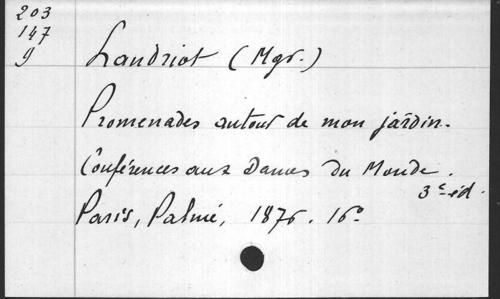 203
147
g
Landriot (Mgr.)
Promenades autour de mon jardin.
Conférences aux Dames du Monde.
3e éd.
Paris, Palmé, 1876. 16º